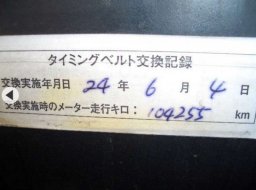 タイミングベルト交換記録
交換実施年月日 24 年 6 月 4 日
交換実施時のメーター走行キロ: 104255 km